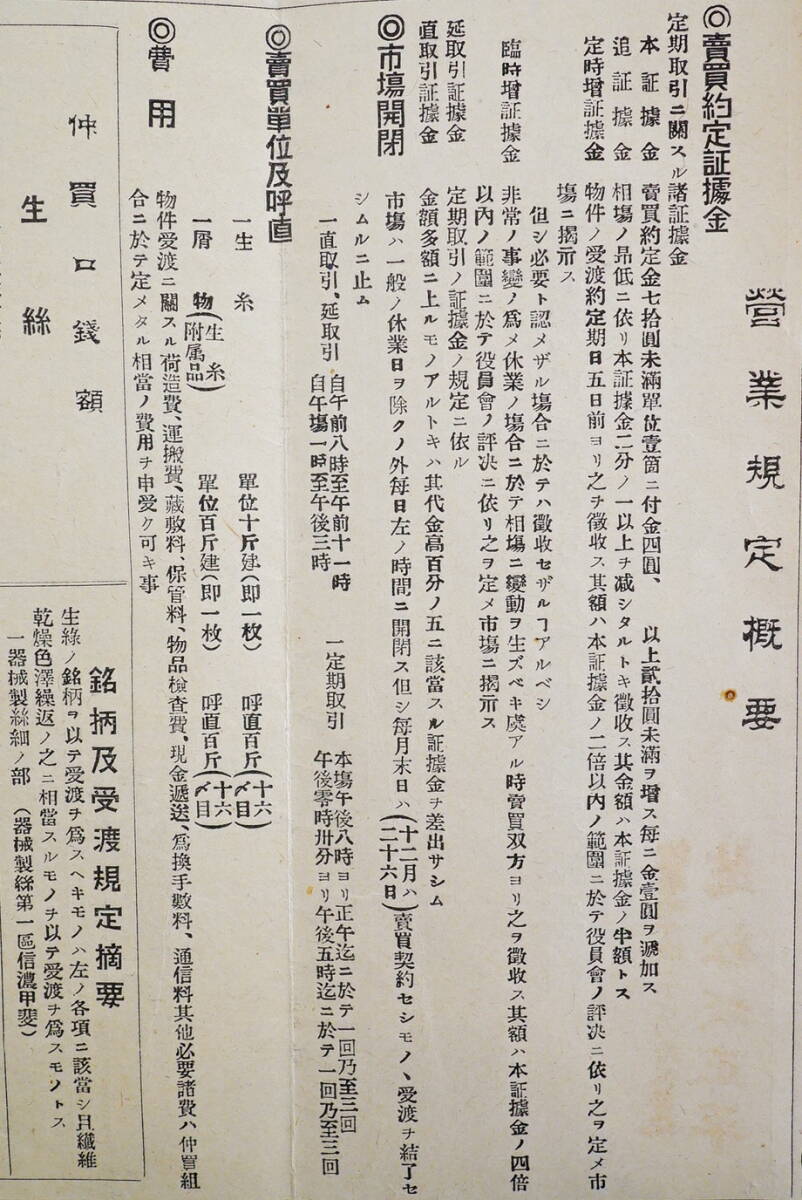 營業規定概要
◎賣買約定証據金
定期取引ニ關スル諸証據金
本証據金 賣買約定金七拾圓未滿單位壹箇ニ付金四圓、以上貳拾圓未滿ヲ增ス每ニ金壹圓ヲ遞加ス
追証據金 相塲ノ昻低ニ依リ本証據金二分ノ一以上ヲ減シタルトキ徵收ス其金額ハ本証據金ノ半額トス
定時增証據金 物件ノ受渡約定期日五日前ヨリ之ヲ徵收ス其額ハ本証據金ノ二倍以内ノ範圍ニ於テ役員會ノ評决ニ依リ之ヲ定メ市
塲ニ揭示ス
但シ必要ト認メザル塲合ニ於テハ徵收セザルヿアルベシ
臨時增証據金 非常ノ事變ノ爲メ休業ノ塲合ニ於テ相塲ニ變動ヲ生ズベキ虞アル時賣買双方ヨリ之ヲ徵收ス其額ハ本証據金ノ四倍
以内ノ範圍ニ於テ役員會ノ評决ニ依リ之ヲ定メ市塲ニ揭示ス
延取引証據金 定期取引ノ証據金ノ規定ニ依ル
直取引証據金 金額多額ニ上ルモノアルトキハ其代金高百分ノ五ニ該當スル証據金ヲ差出サシム
◎市塲開閉 市塲ハ一般ノ休業日ヲ除クノ外每日左ノ時間ニ開閉ス但シ每月末日ハ(十二月ハ二十六日)賣買契約セシモノヽ受渡ヲ結了セ
シムルニ止ム
一直取引、延取引 自午前八時至午前十一時 自午塲一時至午後三時 一定期取引 本塲午後八時ヨリ正午迄ニ於テ一回乃至三回 午後零時卅分ヨリ午後五時迄ニ於テ一回乃至三回
◎賣買單位及呼直
一生糸 單位十斤建(即一枚) 呼直百斤(十六〆目)
一屑物(生糸附属品) 單位百斤建(即一枚) 呼直百斤(十六〆目)
◎費用 物件受渡ニ關スル荷造費、運搬費、藏敷料、保管料、物品檢查費、現金遞送、爲換手數料、通信料其他必要諸費ハ仲買組
合ニ於テ定メタル相當ノ費用ヲ申受ク可キ事
仲買口錢額
生絲
銘柄及受渡規定摘要
生絲ノ銘柄ヲ以テ受渡ヲ爲スヘキモノハ左ノ各項ニ該當シ且纖維
乾燥色澤繰返ノ之ニ相當スルモノヲ以テ受渡ヲ爲スモノトス
一器械製絲細ノ部 (器械製絲第一區信濃甲斐)